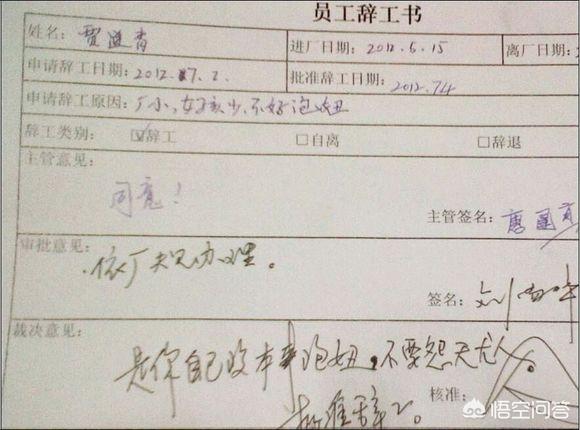 员工辞工书
姓名：贾进青 进厂日期：2012.6.15 离厂日期：
申请辞工日期：2012.7.2. 批准辞工日期：2012.7.4
申请辞工原因：厂小，女孩少，不好泡妞
辞工类别： ☑辞工 □自离 □辞退
主管意见：
同意！
主管签名：唐国
审批意见：
依厂规办理。
签名：刘
裁决意见：
是你自己没本事泡妞，不要怨天尤人
核准：
批准辞工。
悟空问答